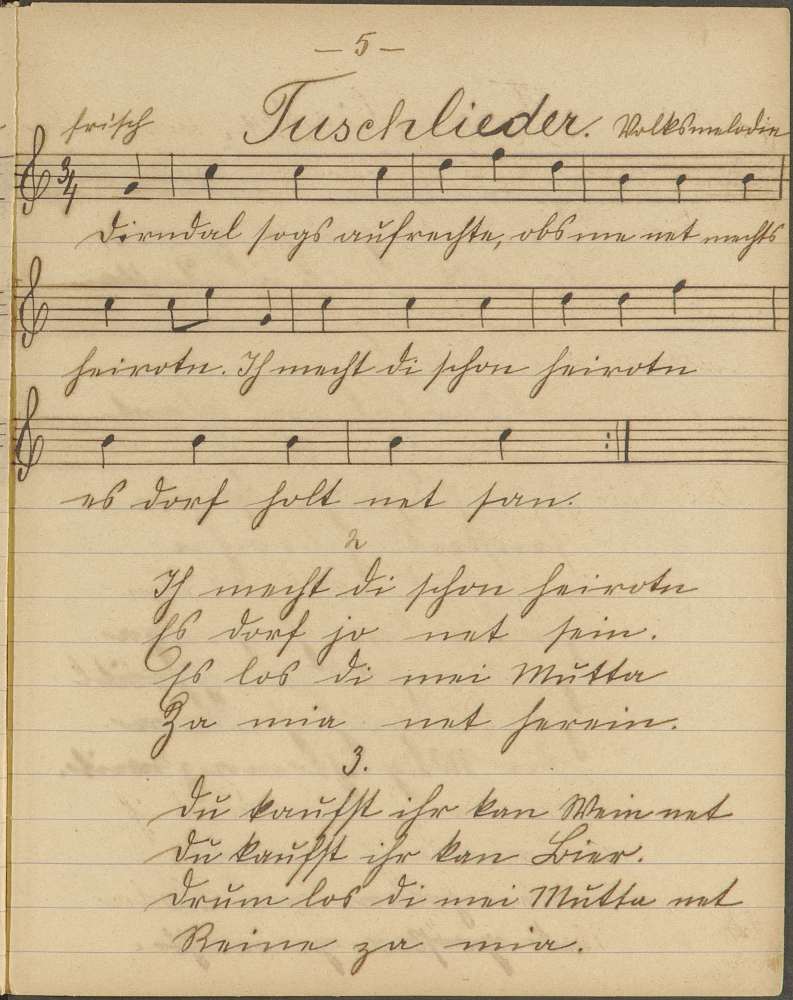 – 5 –
Tuschlieder.
frisch Volksmelodie
3/4
Dirndal sogs aufrechte, obs me net mechts
heirotn. Ich mecht di schon heirotn
es dorf holt net san.
2
Ich mecht di schon heirotn
Es dorf jo net sein.
Es los di mei Mutta
Za mia net herein.
3.
Du kaufst ihr kan Wein net
Du kaufst ihr kan Bier.
Drum los di mei Mutta net
Reine za mia.